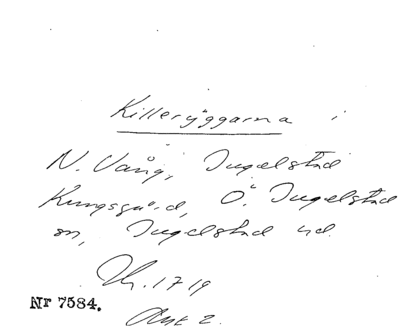 Killeryggarna i
N. Vång, Ingelstad
Kungsgård, Ö. Ingelstad
sn, Ingelstad hd.
Nr 7584.